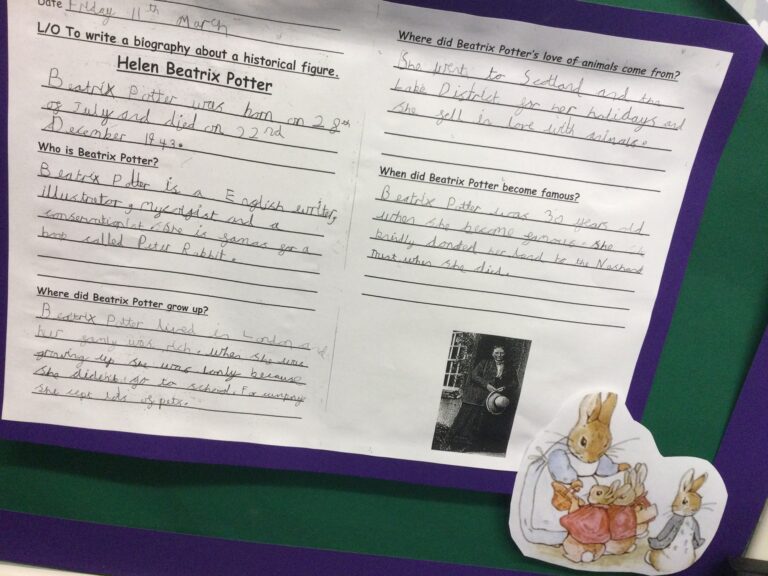 Date Friday 11th March
L/O To write a biography about a historical figure.
Helen Beatrix Potter
Beatrix Potter was born on 28th
of July and died on 22nd
December 1943.
Who is Beatrix Potter?
Beatrix Potter is a English writer,
illustrator, mycolgist and a
conservationist. She is famas for a
book called Peter Rabbit.
Where did Beatrix Potter grow up?
Beatrix Potter lived in London
her family was rich. when she was
growing up she was lonly because
she dident go to school. For
she cept lots of pets.
Where did Beatrix Potter's love of animals come from?
She went to Scotland and the
Lake District for her holidays and
she fell in love with animals.
When did Beatrix Potter become famous?
Beatrix Potter was years old
when she become famous. She
donated her land to the
trust when she died.